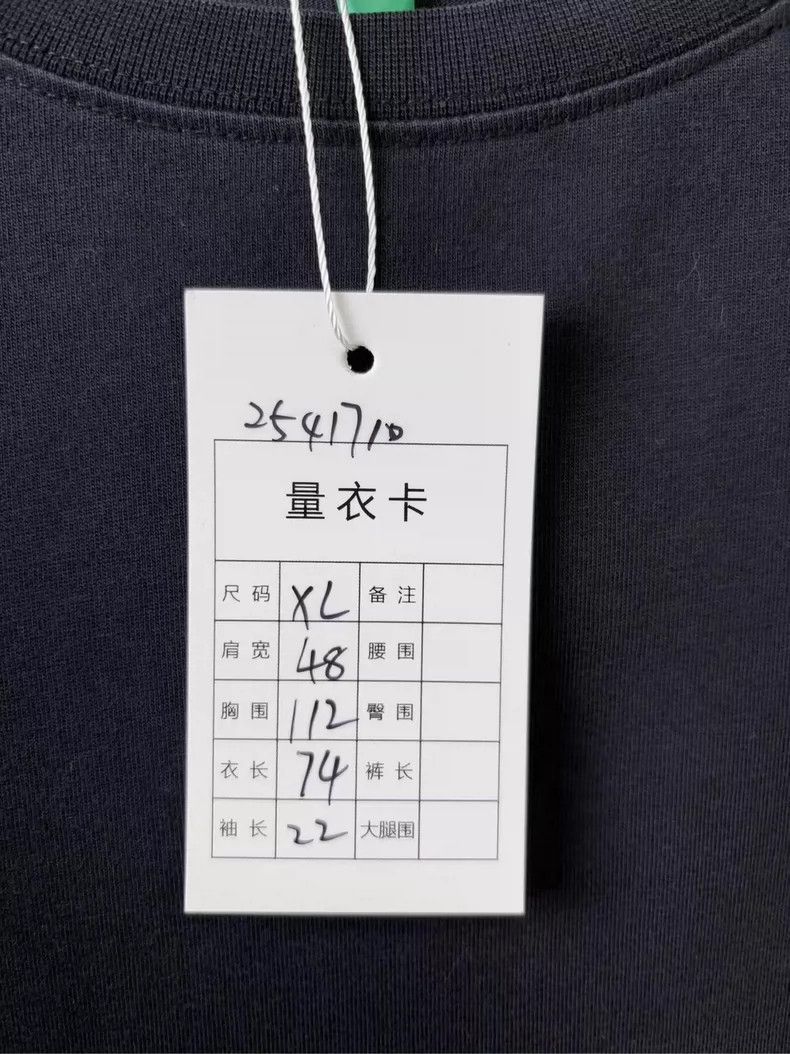 2541710
量衣卡
尺码 XL 备注
肩宽 48 腰围
胸围 112 臀围
衣长 74 裤长
袖长 22 大腿围